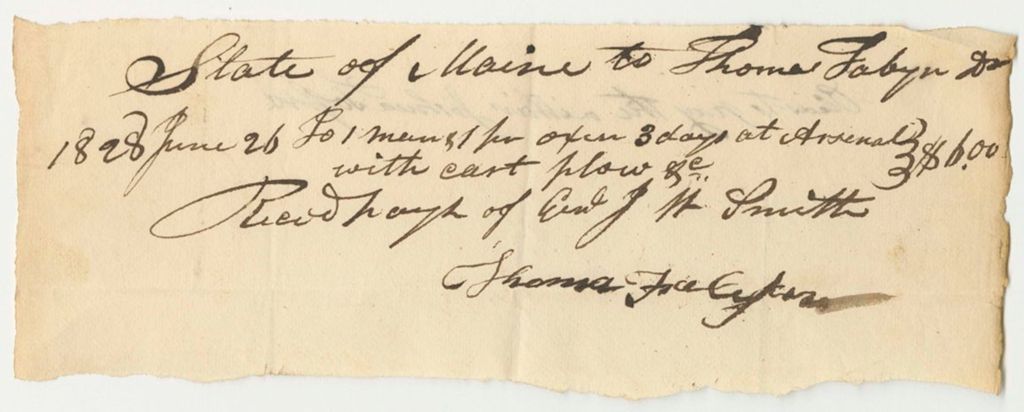 State of Maine to Thomas Fabyn Dr
1828 June 26 To 1 man & 1 pr oxen 3 days at Arsenal } $6.00
with cart plow &c
Recd payt of Genl J W Smith
Thomas Fabyan